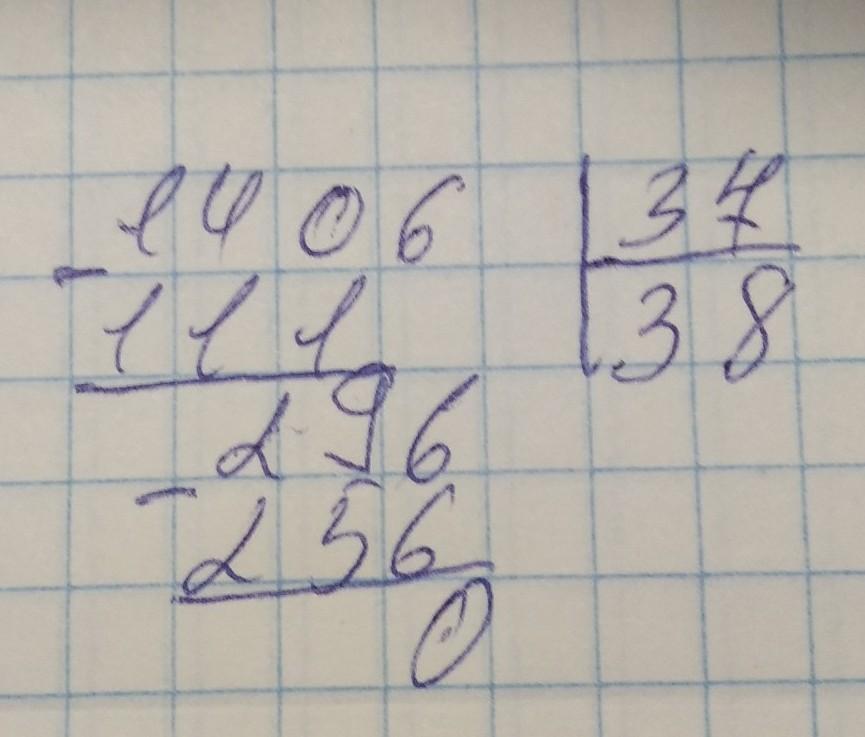 1406 37
- 111 38
296
- 256
0